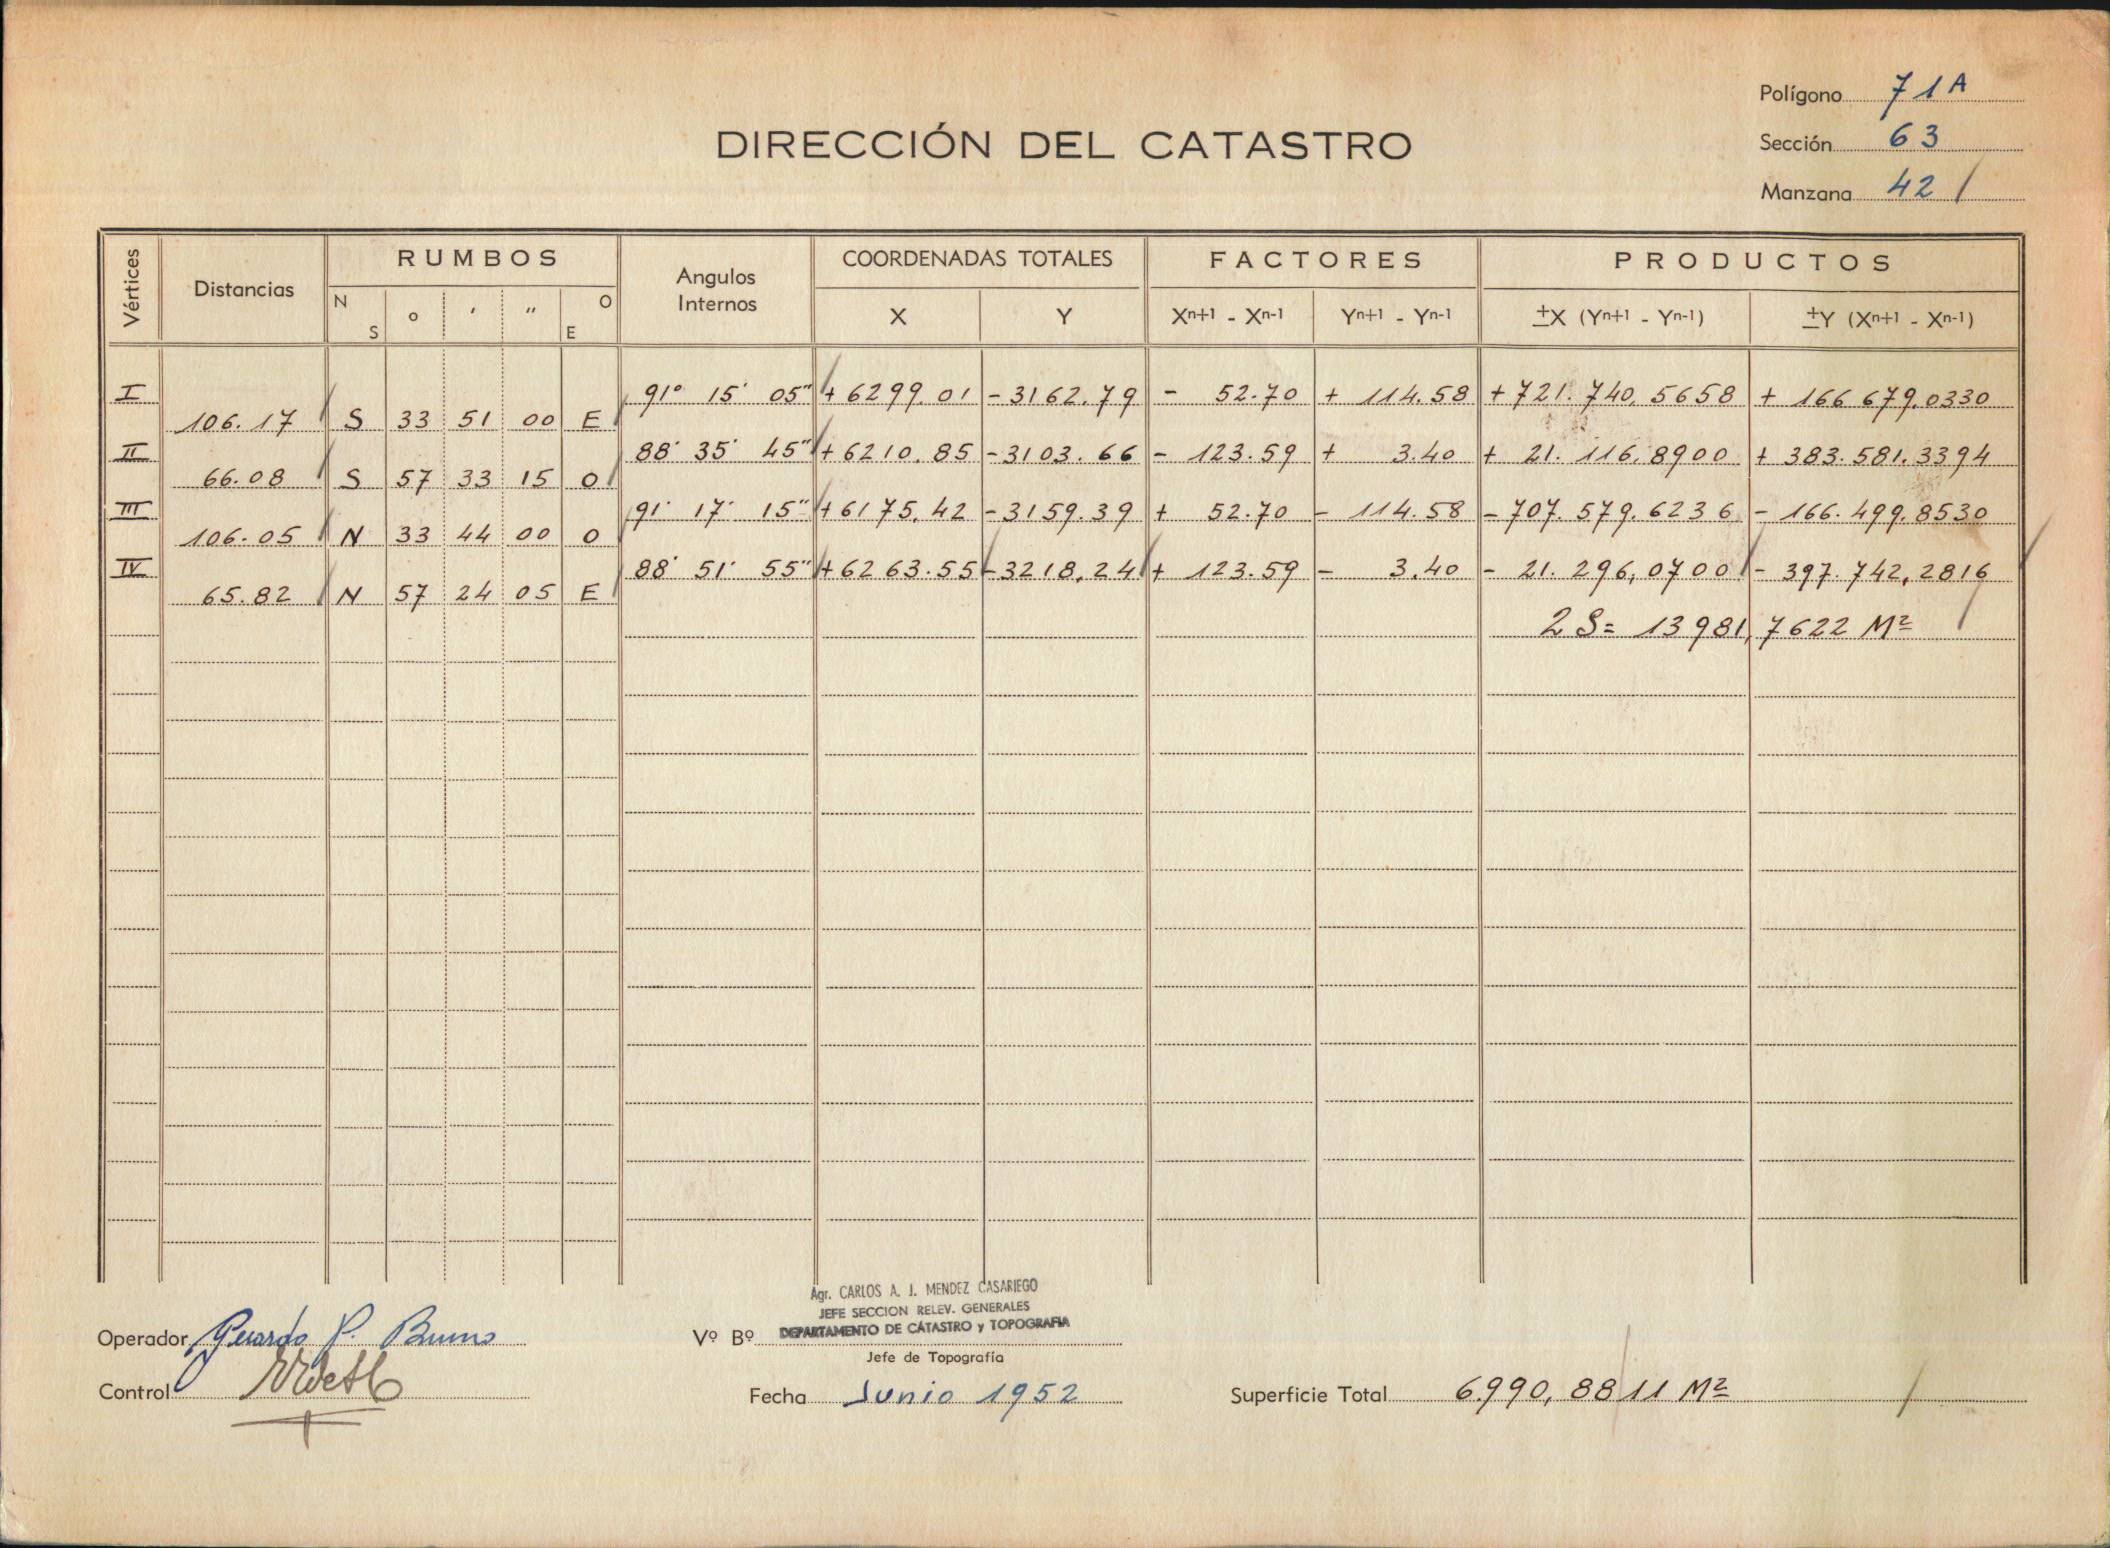 Polígono 71A
DIRECCIÓN DEL CATASTRO
Sección 63
Manzana 42
Vértices Distancias RUMBOS Angulos Internos COORDENADAS TOTALES FACTORES PRODUCTOS
N S o ′ ″ O E X Y Xn+1 - Xn-1 Yn+1 - Yn-1 ±X (Yn+1 - Yn-1) ±Y (Xn+1 - Xn-1)
I 91° 15' 05" +6299.01 -3162.79 - 52.70 + 114.58 +721.740,5658 + 166 679,0330
106.17 S 33 51 00 E
II 88° 35' 45" +6210.85 -3103.66 - 123.59 + 3.40 + 21.116,8900 + 383.581,3394
66.08 S 57 33 15 O
III 91° 17' 15" +6175.42 -3159.39 + 52.70 - 114.58 -707.579,6236 - 166.499,8530
106.05 N 33 44 00 O
IV 88° 51' 55" +6263.55 -3218.24 + 123.59 - 3.40 - 21.296,0700 - 397.742,2816
65.82 N 57 24 05 E
2S= 13981,7622 M²
Agr. CARLOS A. J. MENDEZ CASARIEGO
JEFE SECCION RELEV. GENERALES
DEPARTAMENTO DE CATASTRO y TOPOGRAFIA
Operador Gerardo P. Bruno Vº Bº
Jefe de Topografía
Control Fecha Junio 1952 Superficie Total 6.990,8811 M²